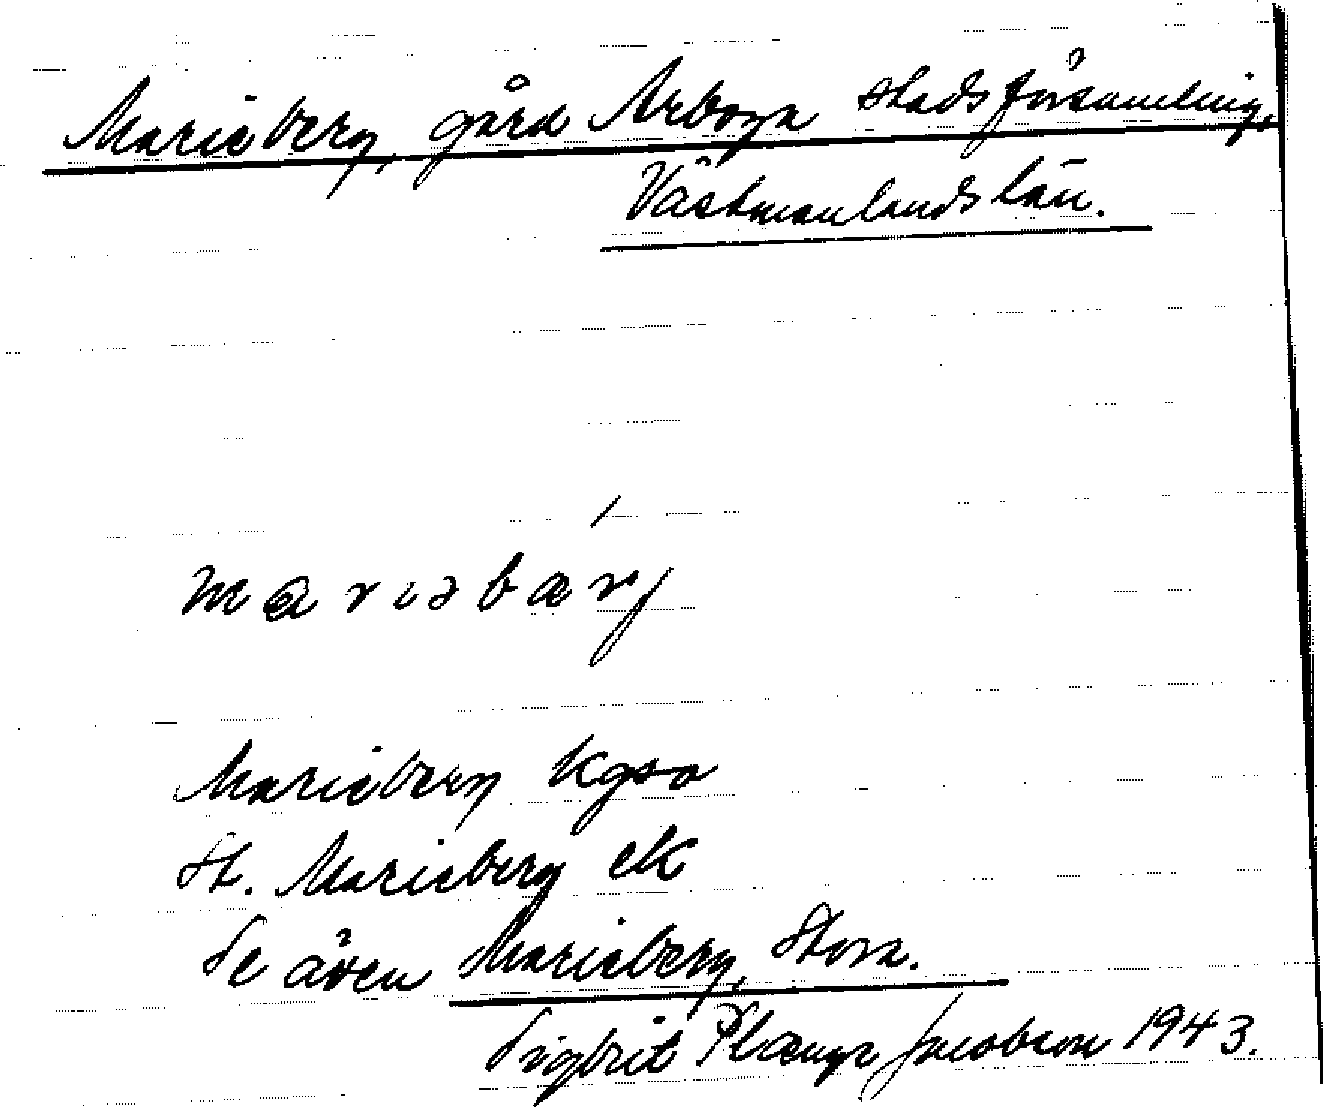 Marieberg, gård Arboga stadsförsamling,
Västmanlands län.
mariəbærj
Marieberg Kgso
St. Marieberg eK
Se även Marieberg, Stora.
Sigbrit Plænge Jacobson 1943.